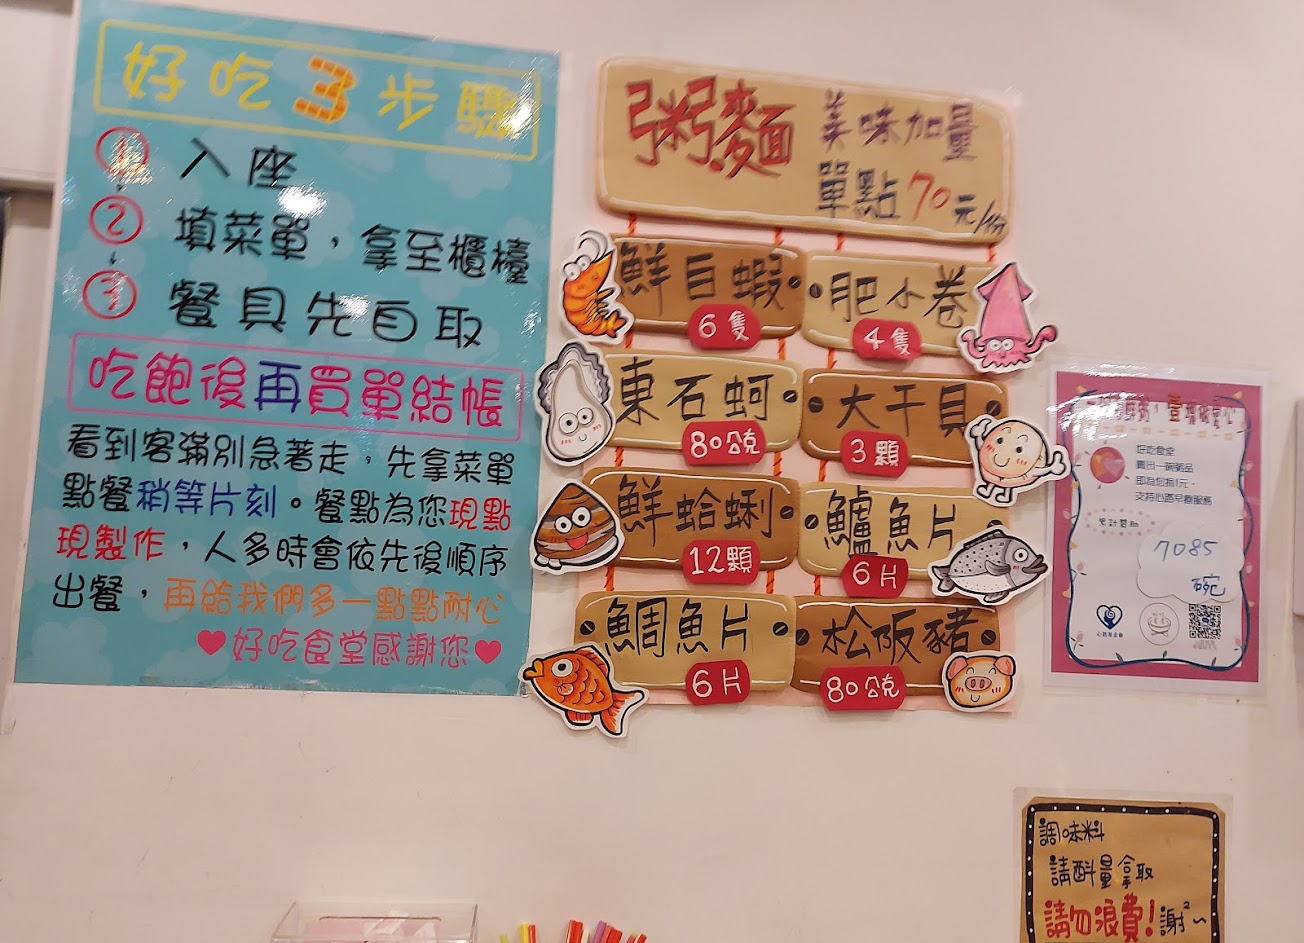 好吃3步驟
1 入座
2 填菜單，拿至櫃檯
3 餐具先自取
吃飽後再買單結帳
看到客滿別急著走，先拿菜單
點餐稍等片刻。餐點為您現點
現製作，人多時會依先後順序
出餐，再給我們多一點點耐心
♥好吃食堂感謝您♥
粥麵 美味加量
單點70元/份
鮮白蝦
6隻
肥小卷
4隻
東石蚵
80公克
大干貝
3顆
鮮蛤蜊
12顆
鱸魚片
6片
鯛魚片
6片
松阪豬
80公克
好吃食堂
賣出一碗粥品
即為您捐1元，
支持心路早療服務
累計幫助
7085
碗
心路基金會
調味料
請酙量拿取
請勿浪費!謝²~